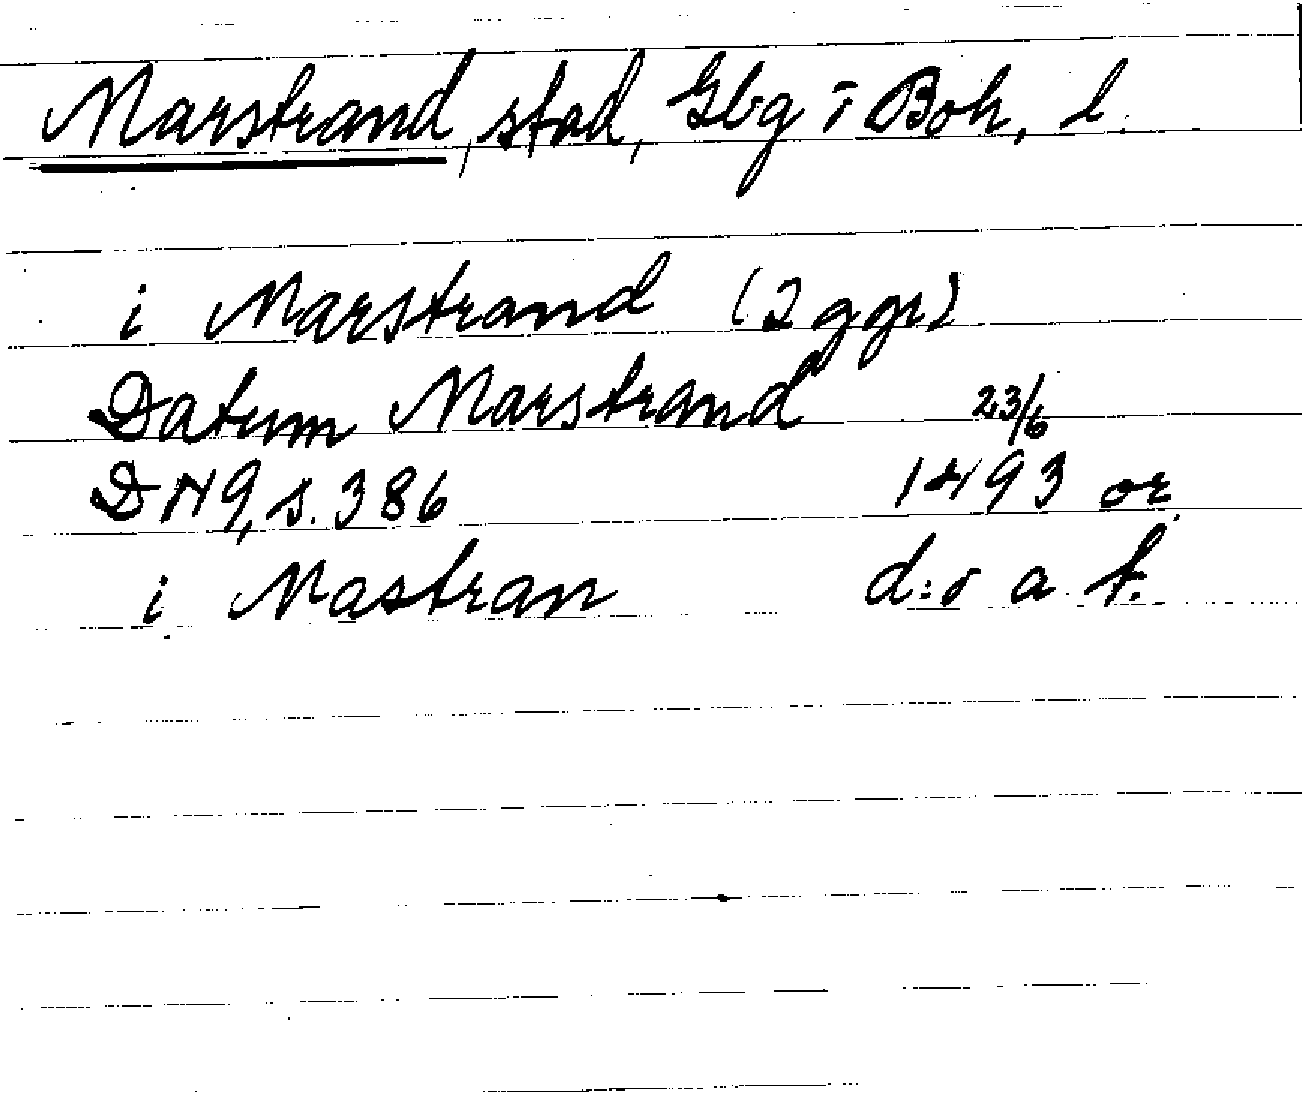 Marstrand, stad, Gbg i Boh, l.
i Marstrand (2 ggr)
Datum Marstrand 23/6
DN 9, s. 386 1493 or.
i Mastran d:o a t.